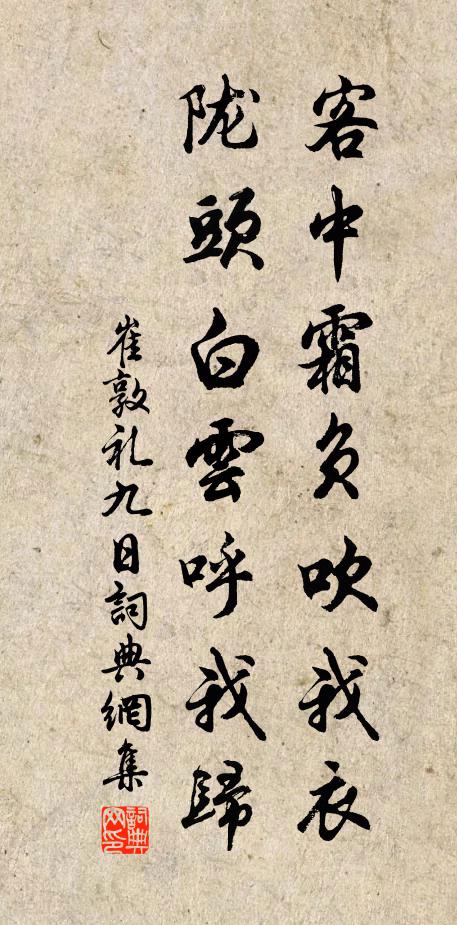 客中霜負吹我衣
陇頭白雲呼我歸
崔敦礼九日詞典網集
詞典网印